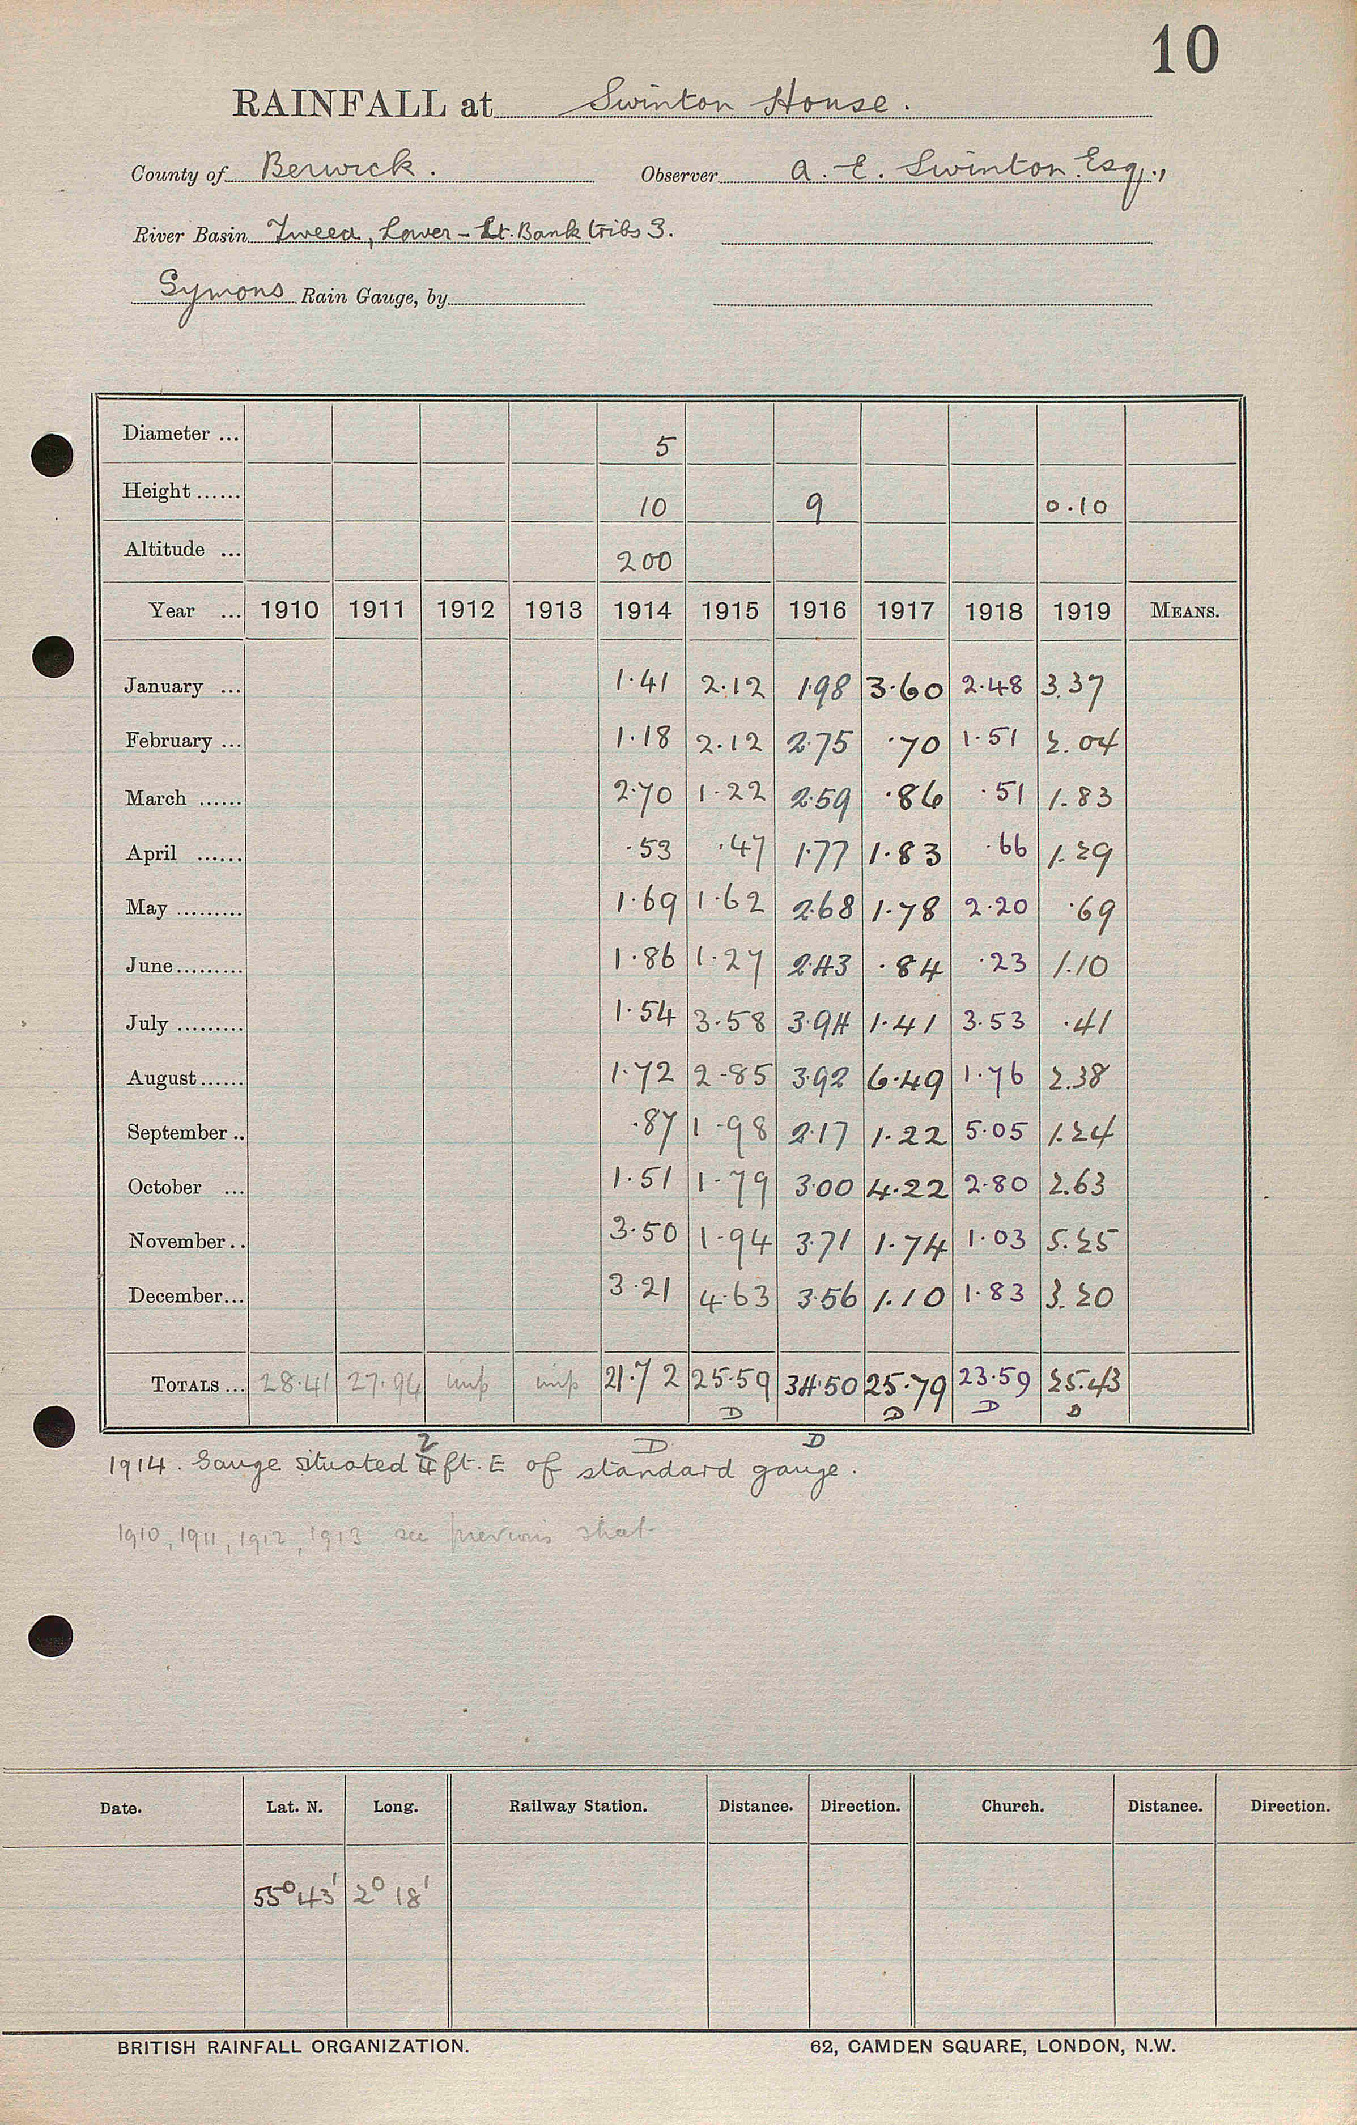 10
RAINFALL at Swinton House.
County of Berwick. Observer A. E. Swinton Esq.,
River Basin Tweed, Lower - Lt. Bank tribs 3.
Symons Rain Gauge, by
Diameter ... 5
Height ...... 10 9 0.10
Altitude ... 200
Year ... 1910 1911 1912 1913 1914 1915 1916 1917 1918 1919 MEANS.
January ... 1.41 2.12 1.98 3.60 2.48 3.37
February ... 1.18 2.12 2.75 .70 1.51 2.04
March ...... 2.70 1.22 2.59 .86 .51 1.83
April ...... .53 .47 1.77 1.83 .66 1.29
May ......... 1.69 1.62 2.68 1.78 2.20 .69
June......... 1.86 1.27 2.43 .84 .23 1.10
July ......... 1.54 3.58 3.94 1.41 3.53 .41
August...... 1.72 2.85 3.92 6.49 1.76 2.38
September .. .87 1.98 2.17 1.22 5.05 1.24
October ... 1.51 1.79 3.00 4.22 2.80 2.63
November.. 3.50 1.94 3.71 1.74 1.03 5.25
December... 3.21 4.63 3.56 1.10 1.83 3.20
TOTALS ... 28.41 27.94 imp imp 21.72 25.59 34.50 25.79 23.59 25.43
D D D D
D D
2
1914. Gauge situated 4 ft. E of standard gauge.
1910, 1911, 1912, 1913 see previous sheet
Date. Lat. N. Long. Railway Station. Distance. Direction. Church. Distance. Direction.
55° 43' 2° 18'
BRITISH RAINFALL ORGANIZATION. 62, CAMDEN SQUARE, LONDON, N.W.